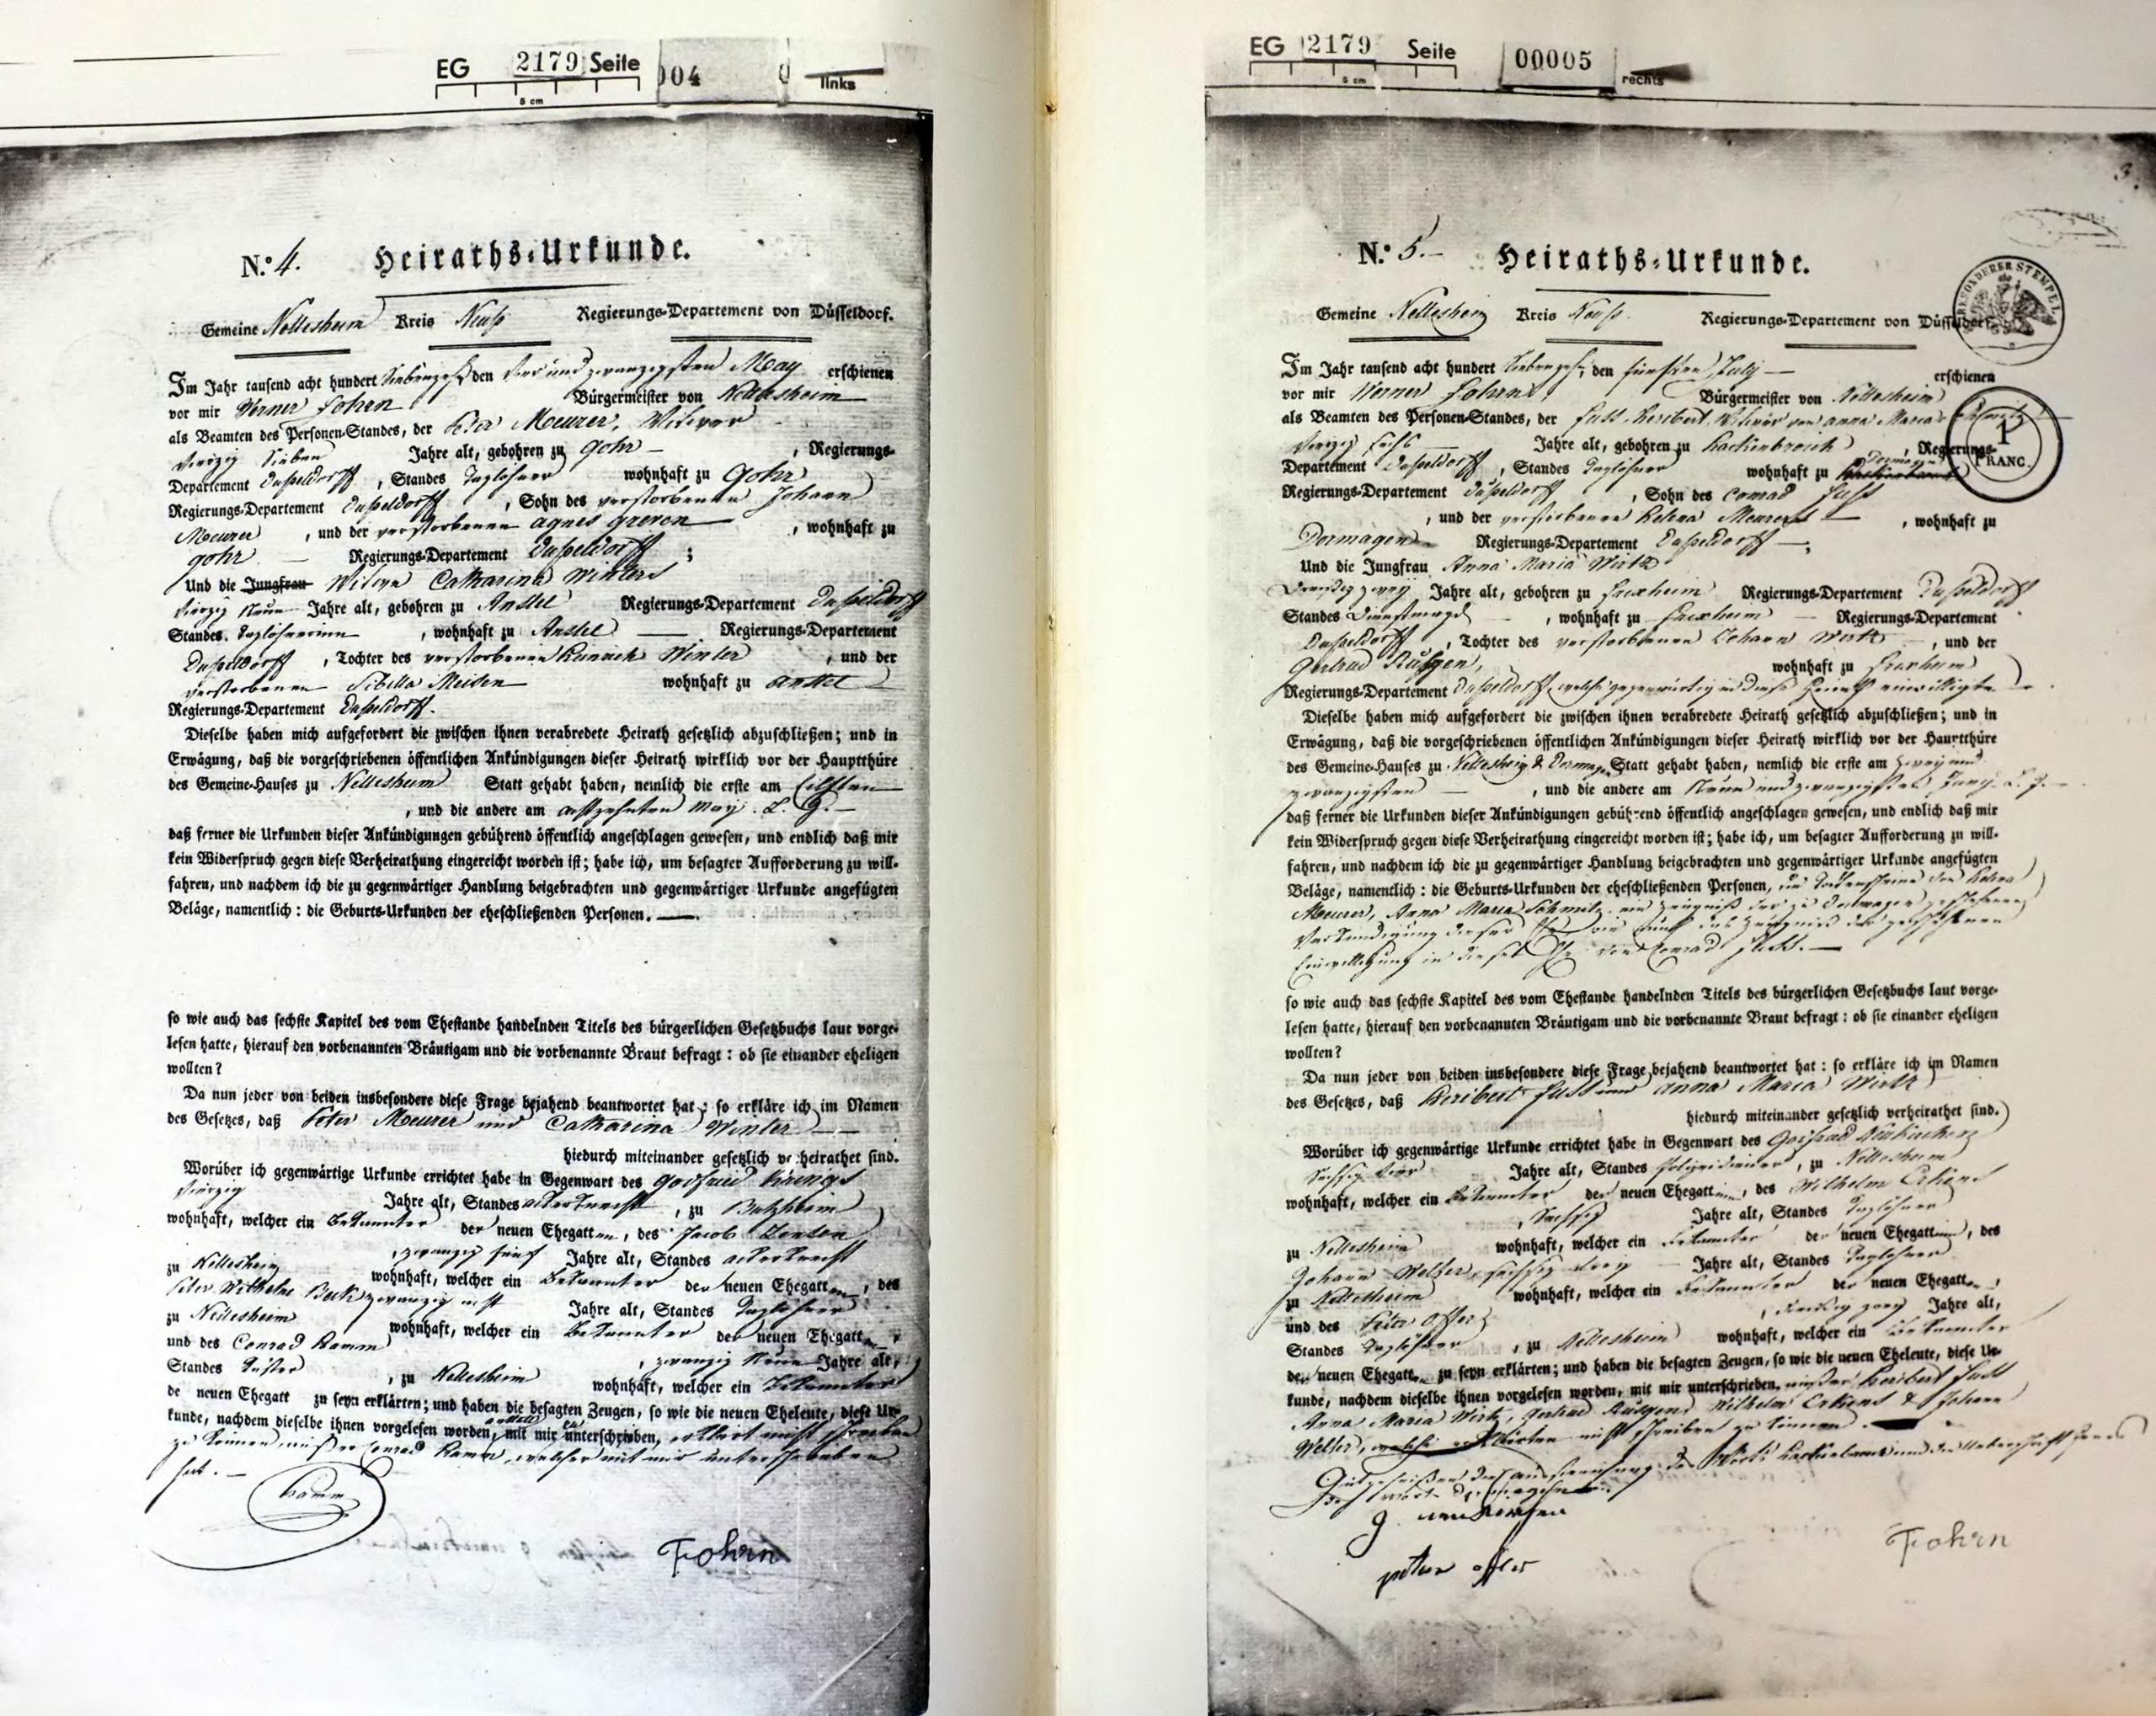 EG 2179 Seite 004
5 cm
links
N.º 4. Heiraths-Urkunde.
Gemeine Nettesheim Kreis Neuß Regierungs-Departement von Düsseldorf.
Im Jahr tausend acht hundert Siebenzehn den vier und zwanzigsten May erschienen
vor mir Werner Fohrn Bürgermeister von Nettesheim
als Beamten des Personen-Standes, der Peter Meurer, Witwer
vierzig Sieben Jahre alt, gebohren zu Gohr , Regierungs-
Departement Düsseldorff , Standes Taglöhner wohnhaft zu Gohr
Regierungs-Departement Düsseldorff , Sohn des verstorbenen Johann
Meurer , und der verstorbenen agnes greven , wohnhaft zu
gohr Regierungs-Departement Düsseldorff ;
Und die Jungfrau Witwe Catharina Winters
vierzig Neun Jahre alt, gebohren zu Anstel Regierungs-Departement Düsseldorff
Standes Taglöhnerinn , wohnhaft zu Anstel Regierungs-Departement
Düsseldorff , Tochter des verstorbenen Winter , und der
verstorbenen Sibilla Meisen wohnhaft zu anstel
Regierungs-Departement Düsseldorff.
Dieselbe haben mich aufgefordert die zwischen ihnen verabredete Heirath gesetzlich abzuschließen; und in
Erwägung, daß die vorgeschriebenen öffentlichen Ankündigungen dieser Heirath wirklich vor der Hauptthüre
des Gemeine-Hauses zu Nettesheim Statt gehabt haben, nemlich die erste am Eilften
, und die andere am achtzehnten May. L. J.
daß ferner die Urkunden dieser Ankündigungen gebührend öffentlich angeschlagen gewesen, und endlich daß mir
kein Widerspruch gegen diese Verheirathung eingereicht worden ist; habe ich, um besagter Aufforderung zu will-
fahren, und nachdem ich die zu gegenwärtiger Handlung beigebrachten und gegenwärtiger Urkunde angefügten
Beläge, namentlich: die Geburts-Urkunden der eheschließenden Personen.
so wie auch das sechste Kapitel des vom Ehestande handelnden Titels des bürgerlichen Gesetzbuchs laut vorge-
lesen hatte, hierauf den vorbenannten Bräutigam und die vorbenannte Braut befragt: ob sie einander eheligen
wollten?
Da nun jeder von beiden insbesondere diese Frage bejahend beantwortet hat: so erkläre ich im Namen
des Gesetzes, daß Peter Meurer und Catharina Winter
hiedurch miteinander gesetzlich verheirathet sind.
Worüber ich gegenwärtige Urkunde errichtet habe in Gegenwart des Godfried Krings
vierzig Jahre alt, Standes ackerknecht , zu Butzheim
wohnhaft, welcher ein Bekannter der neuen Ehegatten, des Jacob
, zwanzig fünf Jahre alt, Standes ackerknecht
zu Nettesheim wohnhaft, welcher ein Bekannter der neuen Ehegatten, des
Peter Wilhelm Beck zwanzig acht Jahre alt, Standes Taglöhner
zu Nettesheim wohnhaft, welcher ein Bekannter der neuen Ehegatten,
und des Conrad Kamm , zwanzig Neun Jahre alt,
Standes Küster , zu Nettesheim wohnhaft, welcher ein Bekannter
de neuen Ehegatt zu seyn erklärten; und haben die besagten Zeugen, so wie die neuen Eheleute, diese Ur-
kunde, nachdem dieselbe ihnen vorgelesen worden, mit mir unterschrieben, erklärt nicht schreiben
zu können, außer Conrad Kamm, welcher mit mir unterschrieben
hat.
Kamm
Fohrn
EG 2179 Seite 00005
5 cm
rechts
3.
N.º 5. Heiraths-Urkunde.
BESONDERER STEMPEL
Gemeine Nettesheim Kreis Neuß. Regierungs-Departement von Düsseldorf.
Im Jahr tausend acht hundert Siebenzehn, den fünften July erschienen
vor mir Werner Fohrn Bürgermeister von Nettesheim
als Beamten des Personen-Standes, der Fuss, Heribert Witwer von anna Maria Schmitz
vierzig sechs Jahre alt, gebohren zu Hackenbroich , Regierungs-
1 FRANC.
Departement Düsseldorff , Standes Taglöhner wohnhaft zu Dormagen
Regierungs-Departement Düsseldorff , Sohn des Conrad Fuss
, und der verstorbenen Helena Meurers , wohnhaft zu
Dormagen Regierungs-Departement Düsseldorff ;
Und die Jungfrau Anna Maria Wirtz
Dreißig zwey Jahre alt, gebohren zu Frixheim Regierungs-Departement Düsseldorff
Standes Dienstmagd , wohnhaft zu Frixheim Regierungs-Departement
Düsseldorff , Tochter des verstorbenen Johann Wirtz , und der
Gertrud Rüsgen, wohnhaft zu Frixheim
Regierungs-Departement Düsseldorff, welche gegenwärtig in diese Heirath einwilligte
Dieselbe haben mich aufgefordert die zwischen ihnen verabredete Heirath gesetzlich abzuschließen; und in
Erwägung, daß die vorgeschriebenen öffentlichen Ankündigungen dieser Heirath wirklich vor der Hauptthüre
des Gemeine-Hauses zu Nettesheim & Dormagen Statt gehabt haben, nemlich die erste am zwey und
zwanzigsten , und die andere am Neun und zwanzigsten Juny L. J.
daß ferner die Urkunden dieser Ankündigungen gebührend öffentlich angeschlagen gewesen, und endlich daß mir
kein Widerspruch gegen diese Verheirathung eingereicht worden ist; habe ich, um besagter Aufforderung zu will-
fahren, und nachdem ich die zu gegenwärtiger Handlung beigebrachten und gegenwärtiger Urkunde angefügten
Beläge, namentlich: die Geburts-Urkunden der eheschließenden Personen, die Todtenscheine der Helena
Meurer, Anna Maria Schmitz, ein Zeugniß der zu Dormagen geschehenen
Verkündigung dieser Ehe, wie auch das Zeugniß der geschehenen
Einwilligung in diese Ehe von Conrad Fuss.
so wie auch das sechste Kapitel des vom Ehestande handelnden Titels des bürgerlichen Gesetzbuchs laut vorge-
lesen hatte, hierauf den vorbenannten Bräutigam und die vorbenannte Braut befragt: ob sie einander eheligen
wollten?
Da nun jeder von beiden insbesondere diese Frage bejahend beantwortet hat: so erkläre ich im Namen
des Gesetzes, daß Heribert Fuss und anna Maria Wirtz
hiedurch miteinander gesetzlich verheirathet sind.
Worüber ich gegenwärtige Urkunde errichtet habe in Gegenwart des
Sechzig vier Jahre alt, Standes Polizeidiener, zu Nettesheim
wohnhaft, welcher ein Bekannter der neuen Ehegatten, des Wilhelm
, Sechzig Jahre alt, Standes Taglöhner
zu Nettesheim wohnhaft, welcher ein Bekannter der neuen Ehegatten, des
Johann Welter, sechzig drey Jahre alt, Standes Taglöhner
zu Nettesheim wohnhaft, welcher ein Bekannter der neuen Ehegatten,
und des Peter Offer , dreißig zwey Jahre alt,
Standes Taglöhner , zu Nettesheim wohnhaft, welcher ein Bekannter
der neuen Ehegatten zu seyn erklärten; und haben die besagten Zeugen, so wie die neuen Eheleute, diese Ur-
kunde, nachdem dieselbe ihnen vorgelesen worden, mit mir unterschrieben, außer Heribert Fuss
Anna Maria Wirtz, Gertrud Rüsgen, Wilhelm & Johann
Welter, welche erklärten nicht schreiben zu können.
peter offer
Fohrn